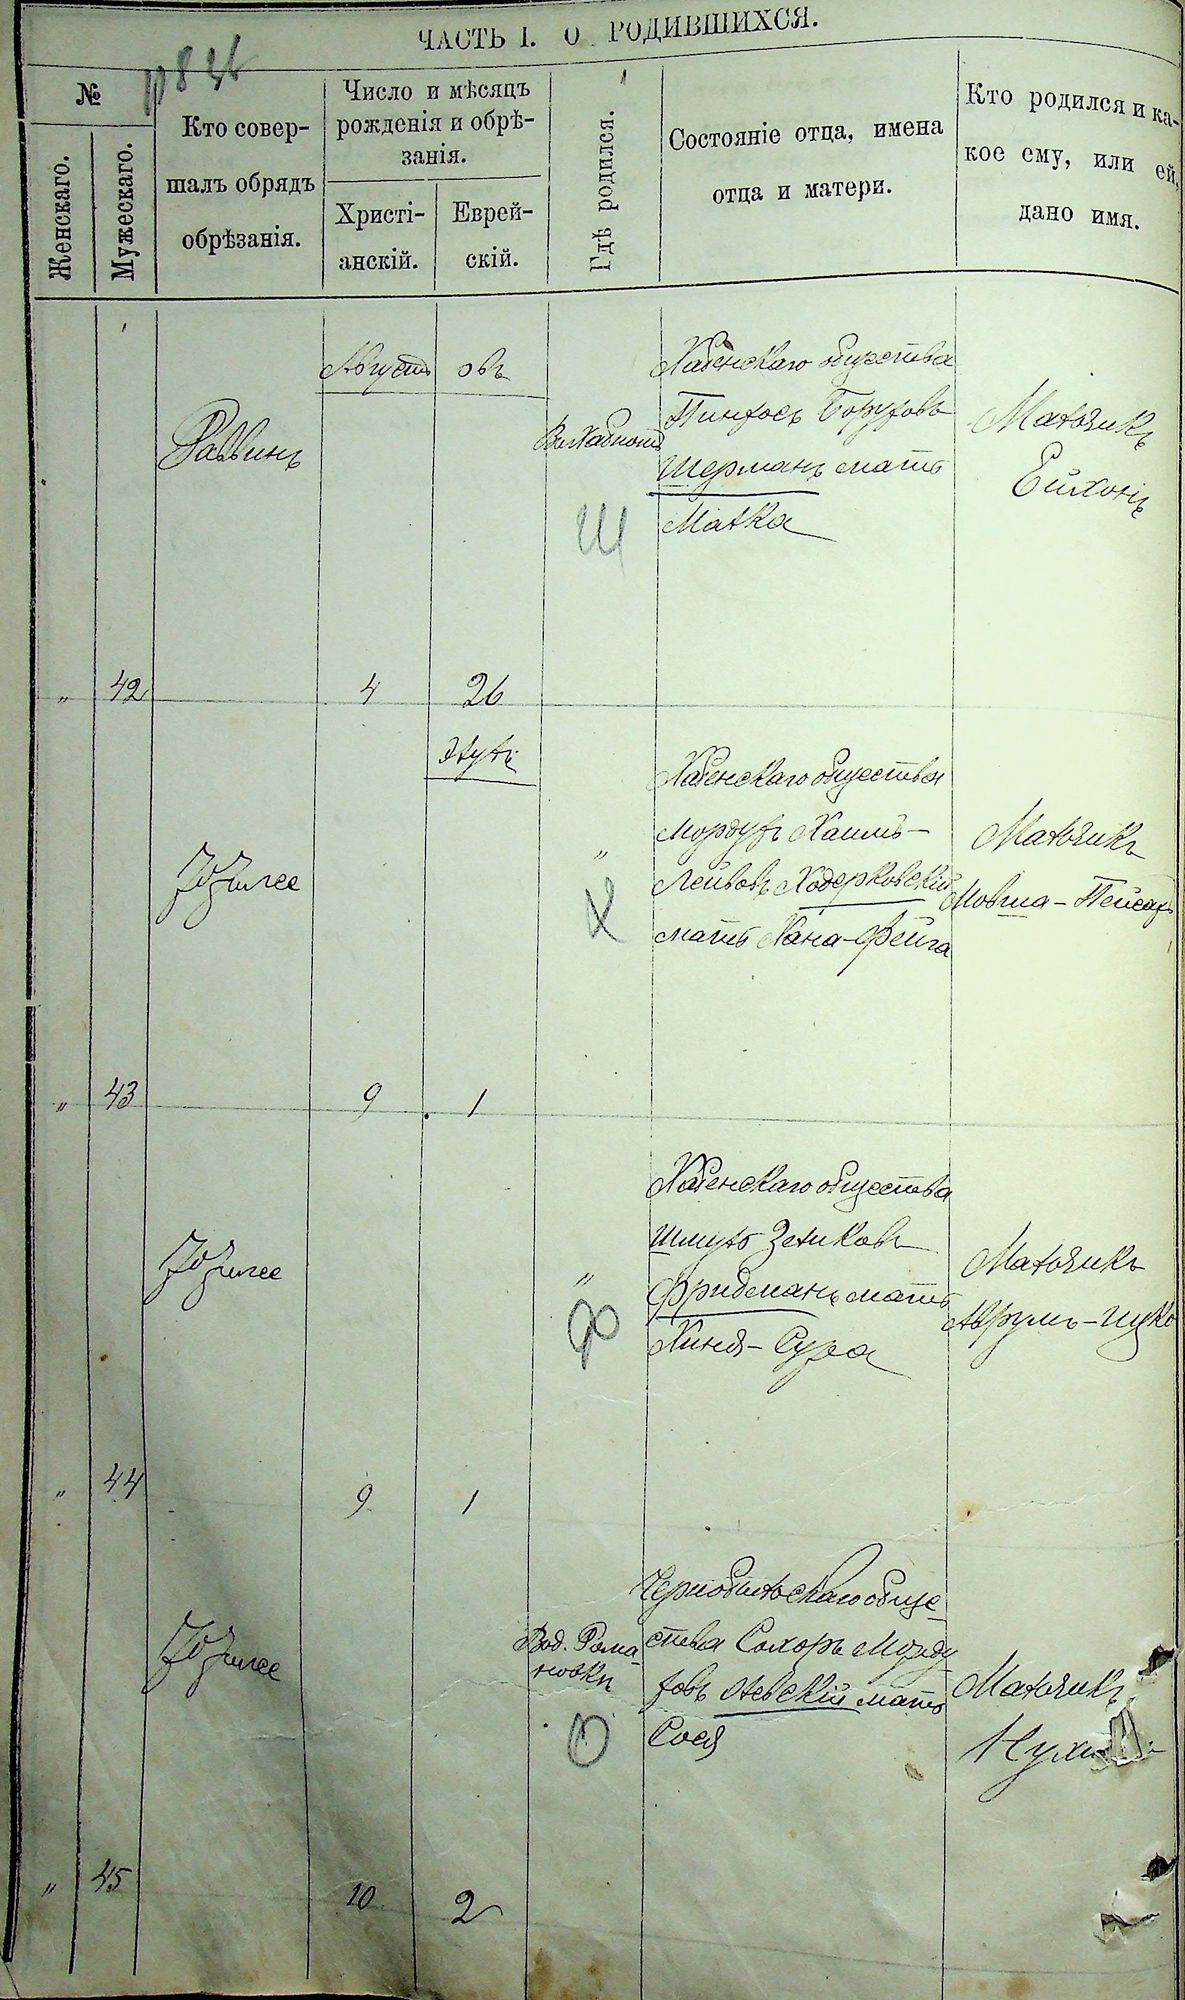 ЧАСТЬ I. О РОДИВШИХСЯ.
№
Женскаго.
Мужескаго.
Кто совер-
шалъ обрядъ
обрѣзанія.
Число и мѣсяцъ
рожденія и обрѣ-
занія.
Христі-
анскій.
Еврей-
скій.
Гдѣ родился.
Состояніе отца, имена
отца и матери.
Кто родился и ка-
кое ему, или ей,
дано имя.
Августъ
овъ
Раввинъ
Хабенскаго общества
Пинхосъ Боруховъ
Шерманъ мать
Малка
Мальчикъ
Ш
" 42 4 26
Элулъ
Хабенскаго общества
Мордухъ Хаимъ-
Лейбовъ Ходорковскій
мать Хана-Фейга
Мальчикъ
Мовша-Пейсахъ
"
Х
" 43 9 1
Хабенскаго общества
Шмуль Зеликовъ
Фридманъ мать
Хиня-Сура
Мальчикъ
Аврумъ-Ицко
"
Ф
" 44 9 1
Вод. Рома-
новки
Чернобыльскаго обще-
ства СахоръМорду-
ховъ мать
Сося
Мальчикъ
О
" 45 10 2